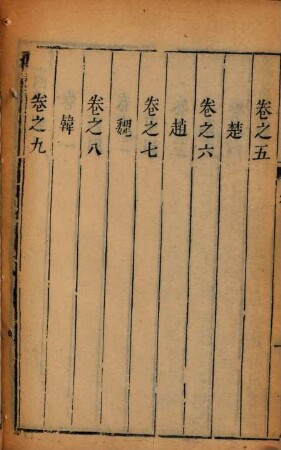 卷之五
楚
卷之六
趙
卷之七
魏
卷之八
韓
卷之九